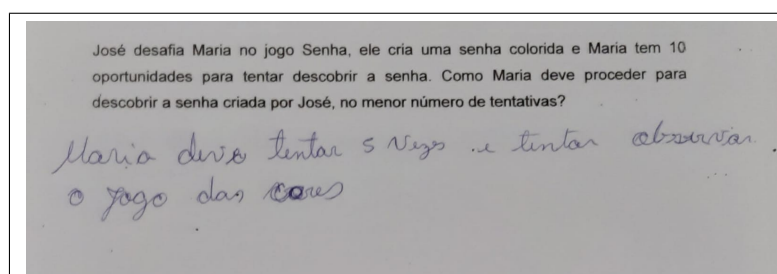 José desafia Maria no jogo Senha, ele cria uma senha colorida e Maria tem 10
oportunidades para tentar descobrir a senha. Como Maria deve proceder para
descobrir a senha criada por José, no menor número de tentativas?
Maria deve tentar 5 vezes e tentar observar
o jogo das cores